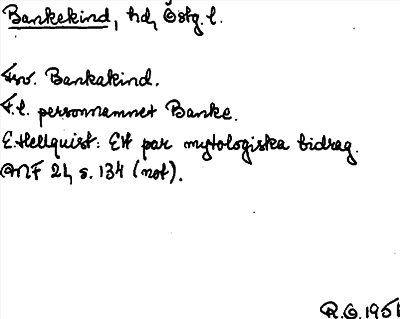 Bankekind, hd, Östg. l.
Fsv. Bankakind.
T. l. personnamnet Banke.
E. Hellquist: Ett par mytologiska bidrag.
ANF 21, s. 134 (not).
R.O. 1951